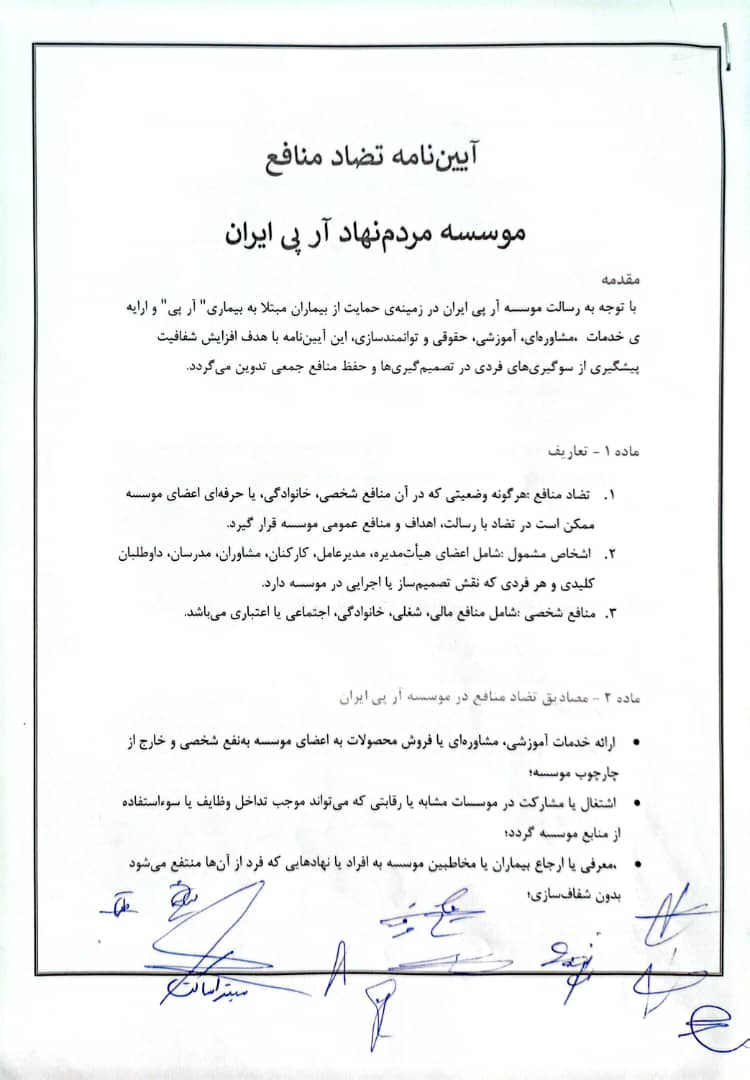 آیین‌نامه تضاد منافع
موسسه مردم‌نهاد آر پی ایران
مقدمه
با توجه به رسالت موسسه آر پی ایران در زمینه‌ی حمایت از بیماران مبتلا به بیماری" آر پی" و ارایه
ی خدمات ،مشاوره‌ای، آموزشی، حقوقی و توانمندسازی، این آیین‌نامه با هدف افزایش شفافیت
پیشگیری از سوگیری‌های فردی در تصمیم‌گیری‌ها و حفظ منافع جمعی تدوین می‌گردد.
ماده ۱ - تعاریف
۱. تضاد منافع :هرگونه وضعیتی که در آن منافع شخصی، خانوادگی، یا حرفه‌ای اعضای موسسه
ممکن است در تضاد با رسالت، اهداف و منافع عمومی موسسه قرار گیرد.
۲. اشخاص مشمول :شامل اعضای هیأت‌مدیره، مدیرعامل، کارکنان، مشاوران، مدرسان، داوطلبان
کلیدی و هر فردی که نقش تصمیم‌ساز یا اجرایی در موسسه دارد.
۳. منافع شخصی :شامل منافع مالی، شغلی، خانوادگی، اجتماعی یا اعتباری می‌باشد.
ماده ۲ - مصادیق تضاد منافع در موسسه آر پی ایران
• ارائه خدمات آموزشی، مشاوره‌ای یا فروش محصولات به اعضای موسسه به‌نفع شخصی و خارج از
چارچوب موسسه؛
• اشتغال یا مشارکت در موسسات مشابه یا رقابتی که می‌تواند موجب تداخل وظایف یا سوءاستفاده
از منابع موسسه گردد؛
• ،معرفی یا ارجاع بیماران یا مخاطبین موسسه به افراد یا نهادهایی که فرد از آن‌ها منتفع می‌شود
بدون شفاف‌سازی؛